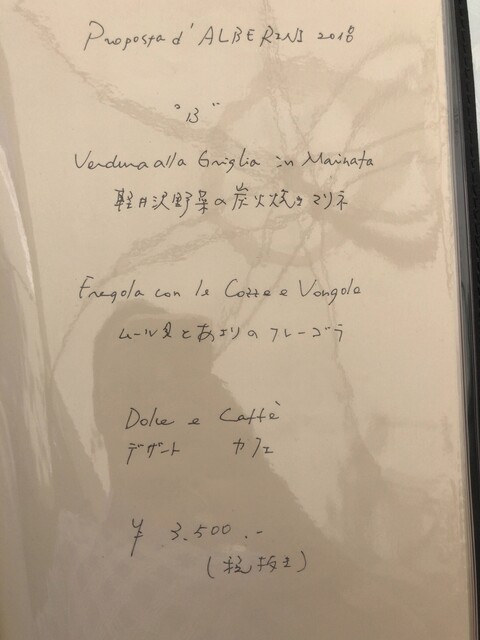 Proposta d'ALBERINI 2018
"B"
Verdura alla Griglia in Marinata
軽井沢野菜の炭火焼きマリネ
Fregola con le Cozze e Vongole
ムール貝とあさりのフレーゴラ
Dolce e Caffè
デザート カフェ
¥ 3.500.-
(税抜き)